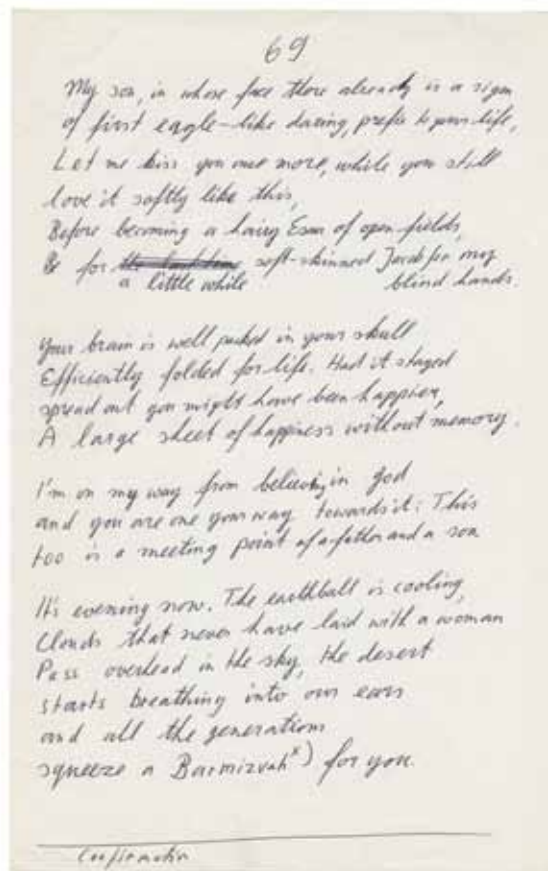 69
My son, in whose face there already is a sign
of first eagle-like daring, prefix to your life,
Let me kiss you once more, while you still
love it softly like this,
Before becoming a hairy Esau of open fields,
Be for soft-skinned Jacob for my
a little while blind hands.
Your brain is well packed in your skull
Efficiently folded for life. Had it stayed
spread out you might have been happier,
A large sheet of happiness without memory.
I'm on my way from believing in God
and you are one your way towards it: This
too is a meeting point of a father and a son
It's evening now. The earthball is cooling,
Clouds that never have laid with a woman
Pass overhead in the sky, the desert
starts breathing into our ears
and all the generations
squeeze a Barmizvah x) for you.
Confirmation